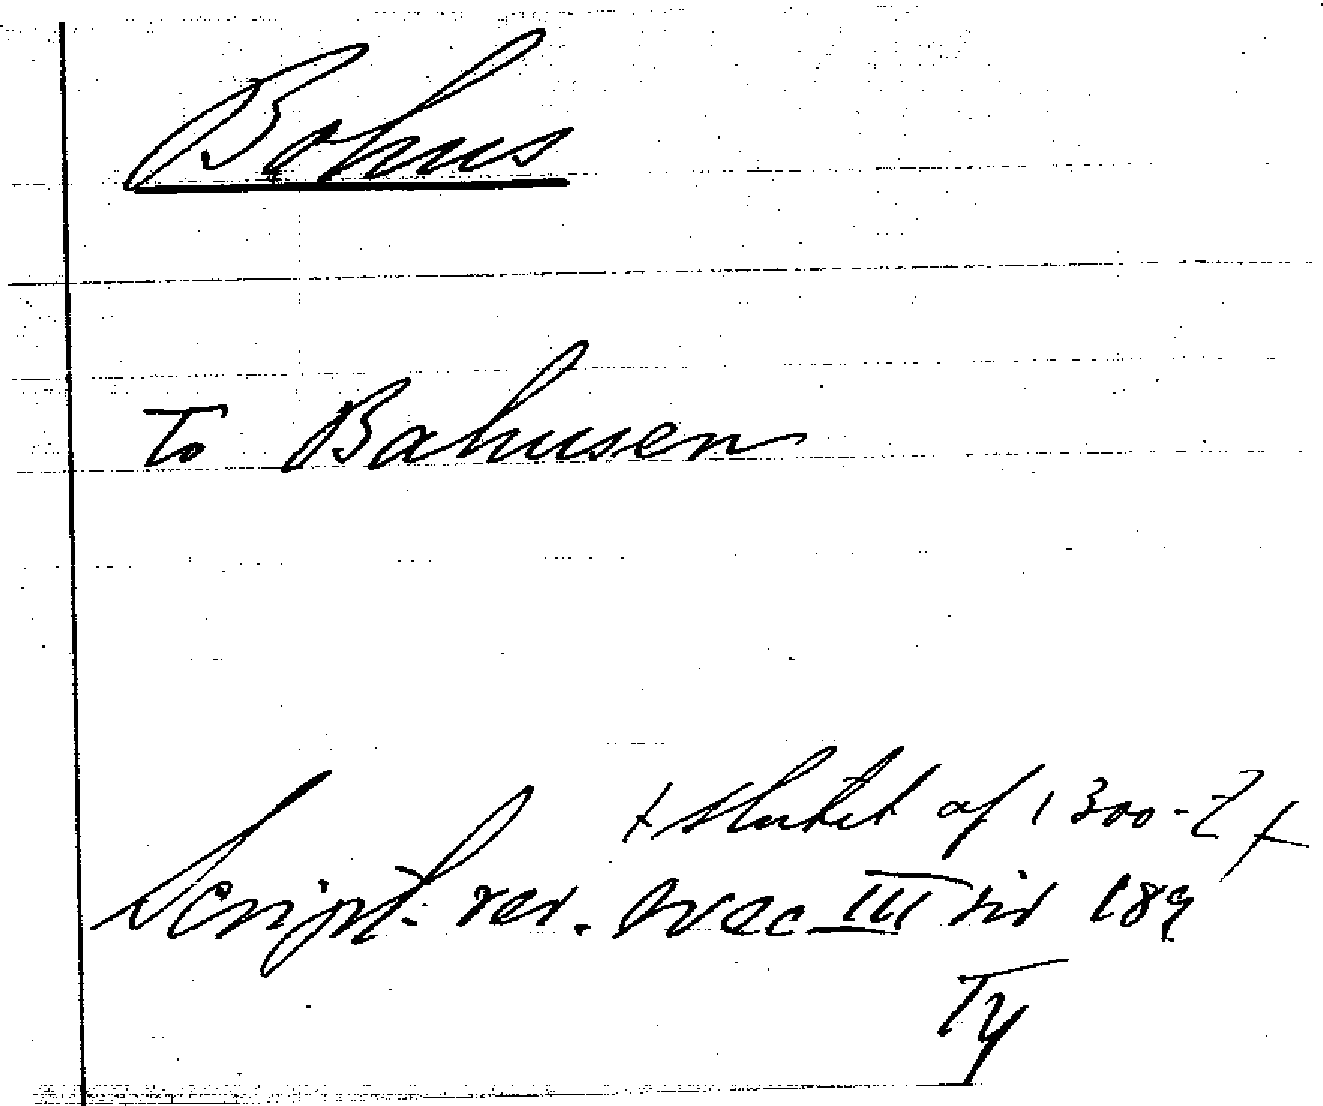 Bohus
To Bahusen
+ slutet af 1300-t +
Script. rer. svec III sid 189
Ty